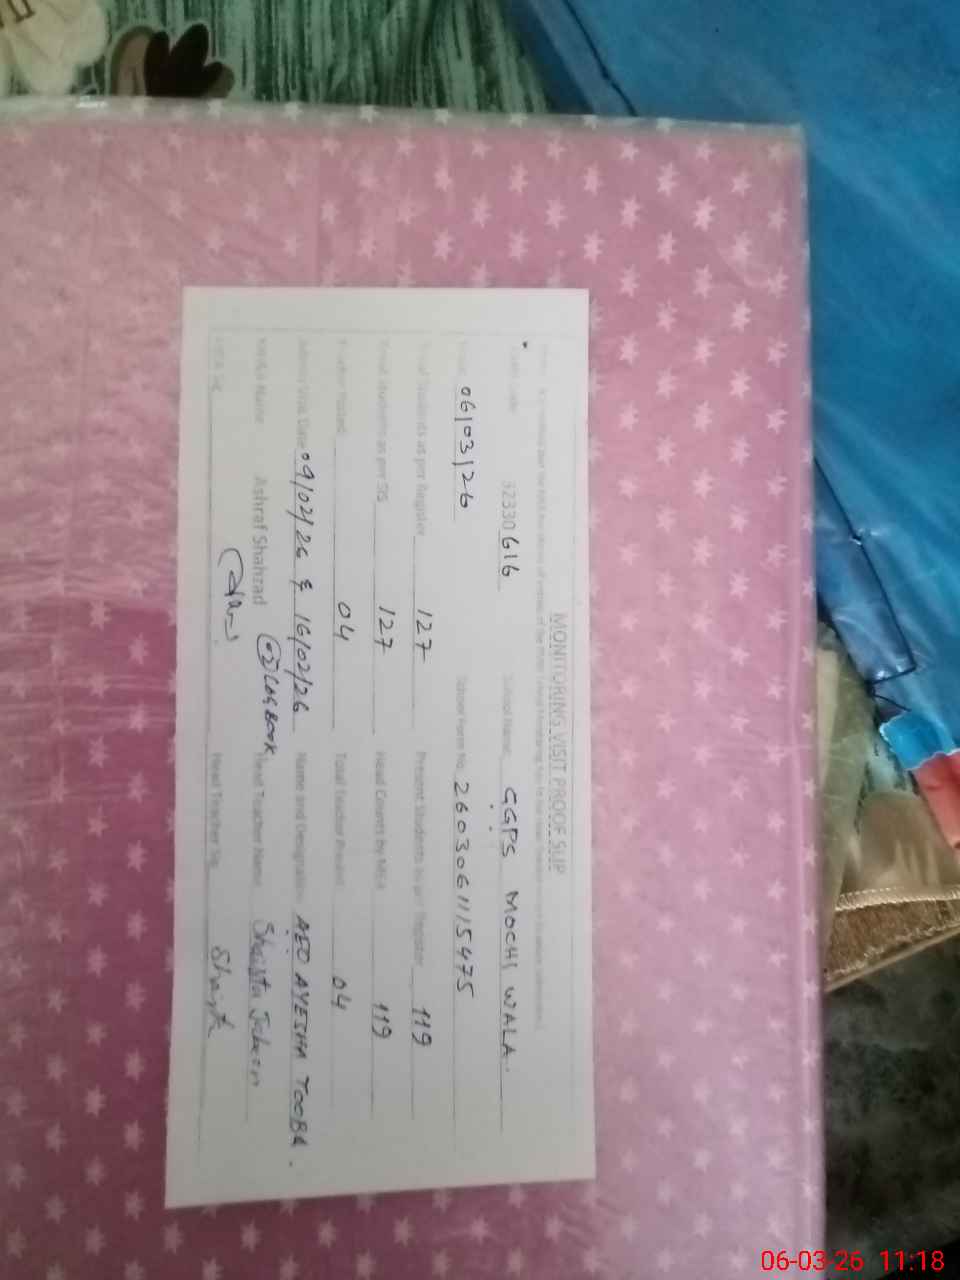 MONITORING VISIT PROOF SLIP
32330616 School Name GGPS MOCHI WALA.
06/03/26 Tablet Form No. 2603061115475
Total Students as per Register 127 Present Students as per Register 119
Total students as per SIS 127 Head Counts by MEA 119
Teacher Posted 04 Total Teacher Present 04
Admin Visit Date 09/02/26 & 16/02/26 Name and Designation AEO AYESHA TOOBA.
MEA Name Ashraf Shahzad LOG BOOK Head Teacher Name Shaista Jabeen
MEA Sig Head Teacher Sig
06-03-26 11:18